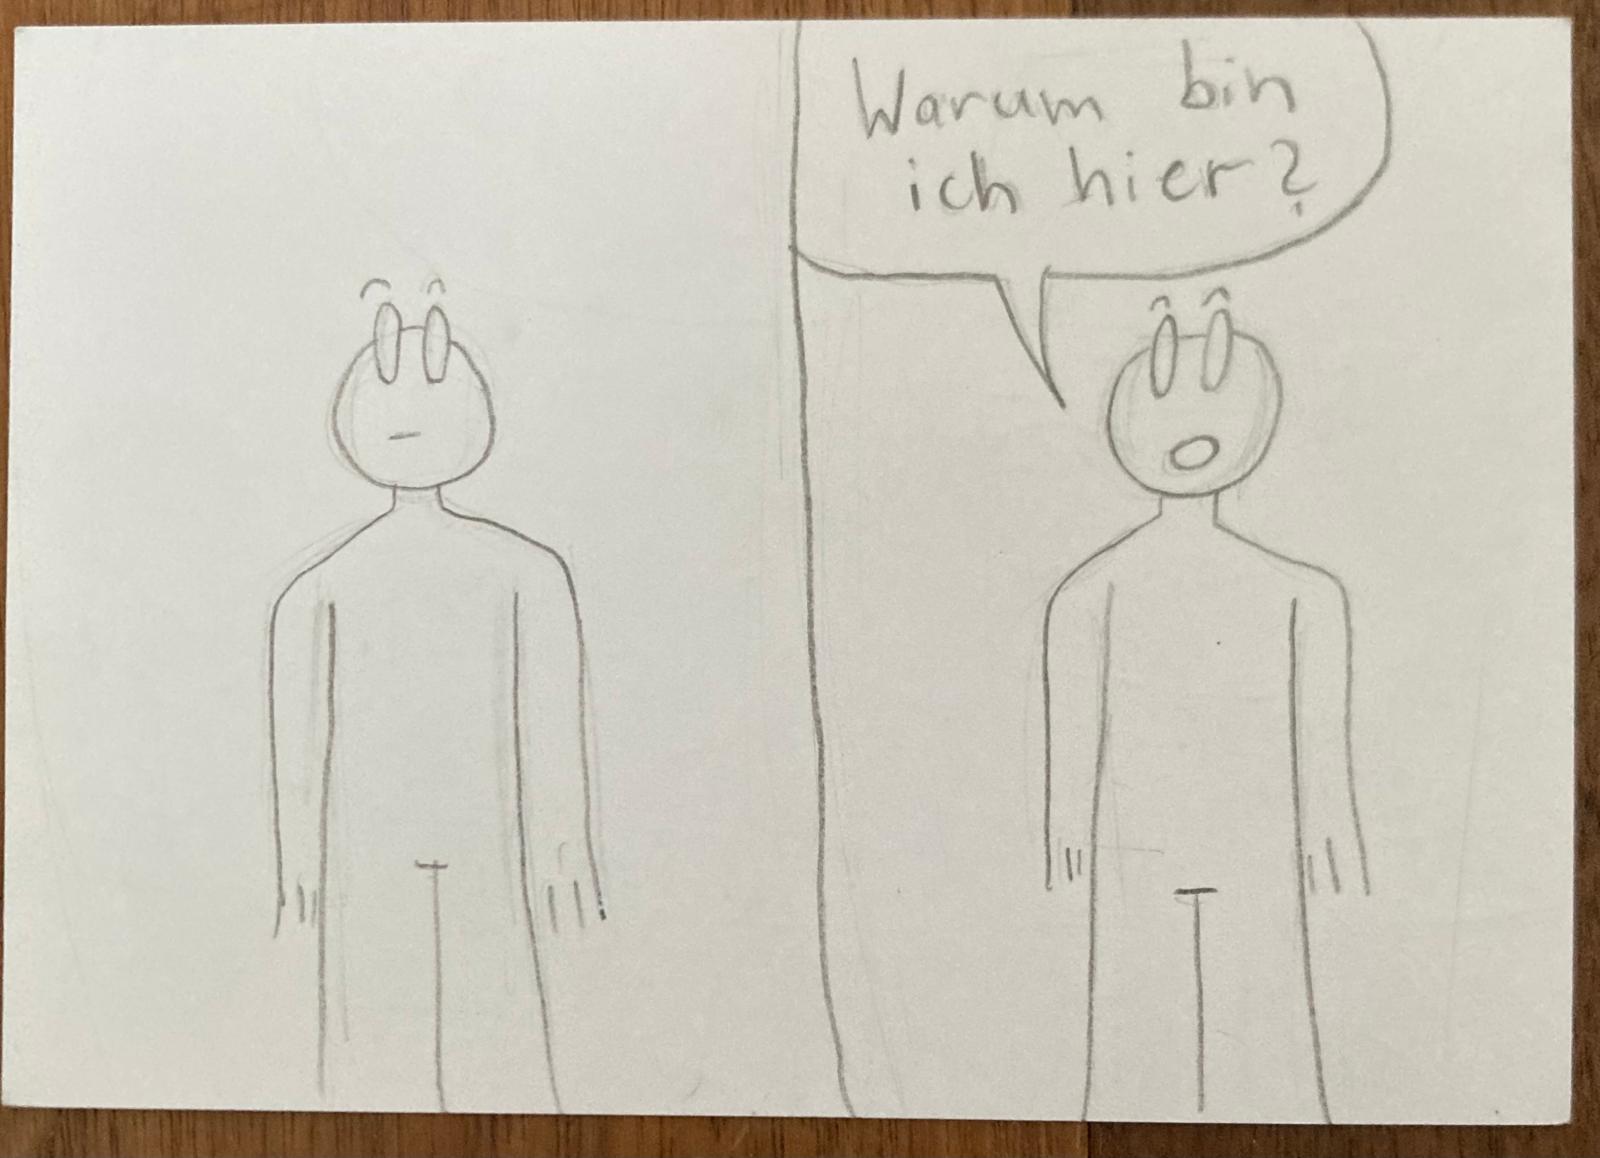 Warum bin
ich hier?